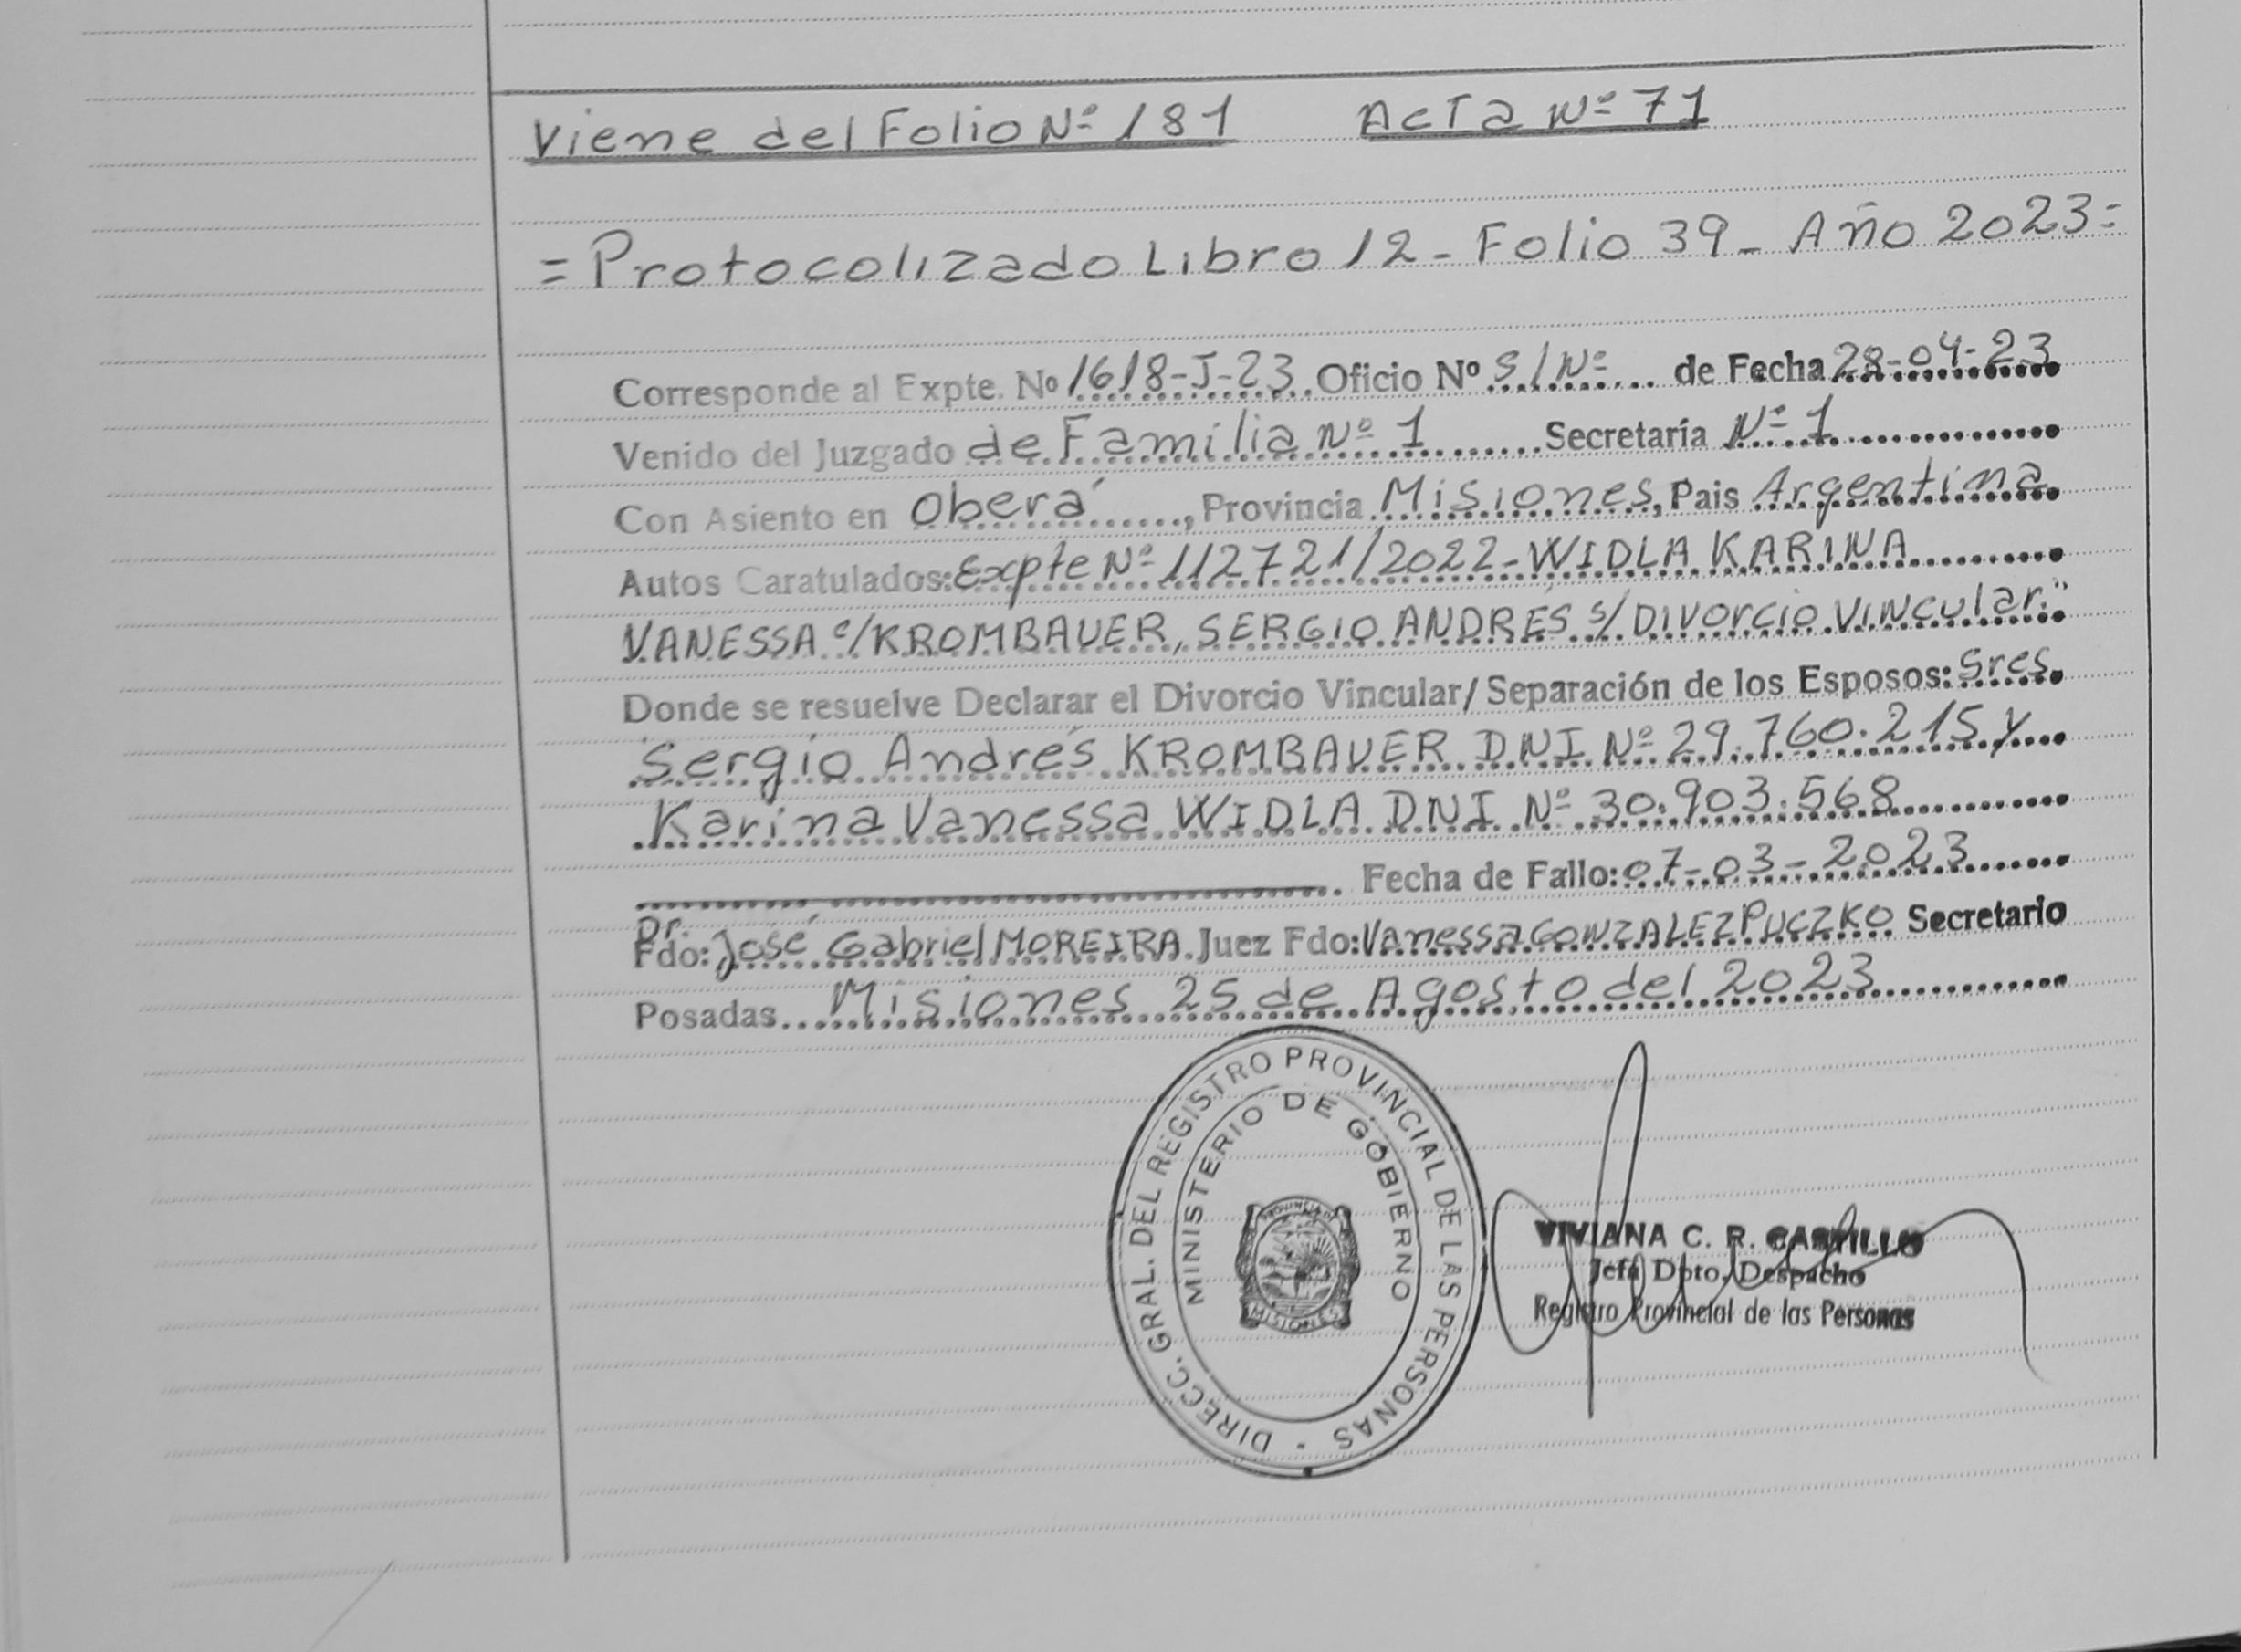 Viene del Folio Nº 181 Acta Nº 71
= Protocolizado Libro 12 - Folio 39 - Año 2023 =
Corresponde al Expte. Nº 1618-J-23. Oficio Nº S/Nº de Fecha 28-04-23
Venido del Juzgado de Familia Nº 1 Secretaría Nº 1
Con Asiento en Oberá, Provincia Misiones, Pais Argentina.
Autos Caratulados: Expte Nº 112721/2022 - WIDLA KARINA
VANESSA c/ KROMBAUER, SERGIO ANDRÉS s/ DIVORCIO VINCULAR."
Donde se resuelve Declarar el Divorcio Vincular/ Separación de los Esposos: Sres.
Sergio Andrés KROMBAUER DNI Nº 29.760.215 y
Karina Vanessa WIDLA DNI Nº 30.903.568
Fecha de Fallo: 07-03-2023
Fdo: Dr. José Gabriel MOREIRA. Juez Fdo: Vanessa GONZALEZ PUCZKO Secretario
Posadas... Misiones 25 de Agosto del 2023
DIRECC. GRAL. DEL REGISTRO PROVINCIAL DE LAS PERSONAS
MINISTERIO DE GOBIERNO
PROVINCIA DE
MISIONES
VIVIANA C. R. CASTILLO
Jefa Dpto. Despacho
Registro Provincial de las Personas